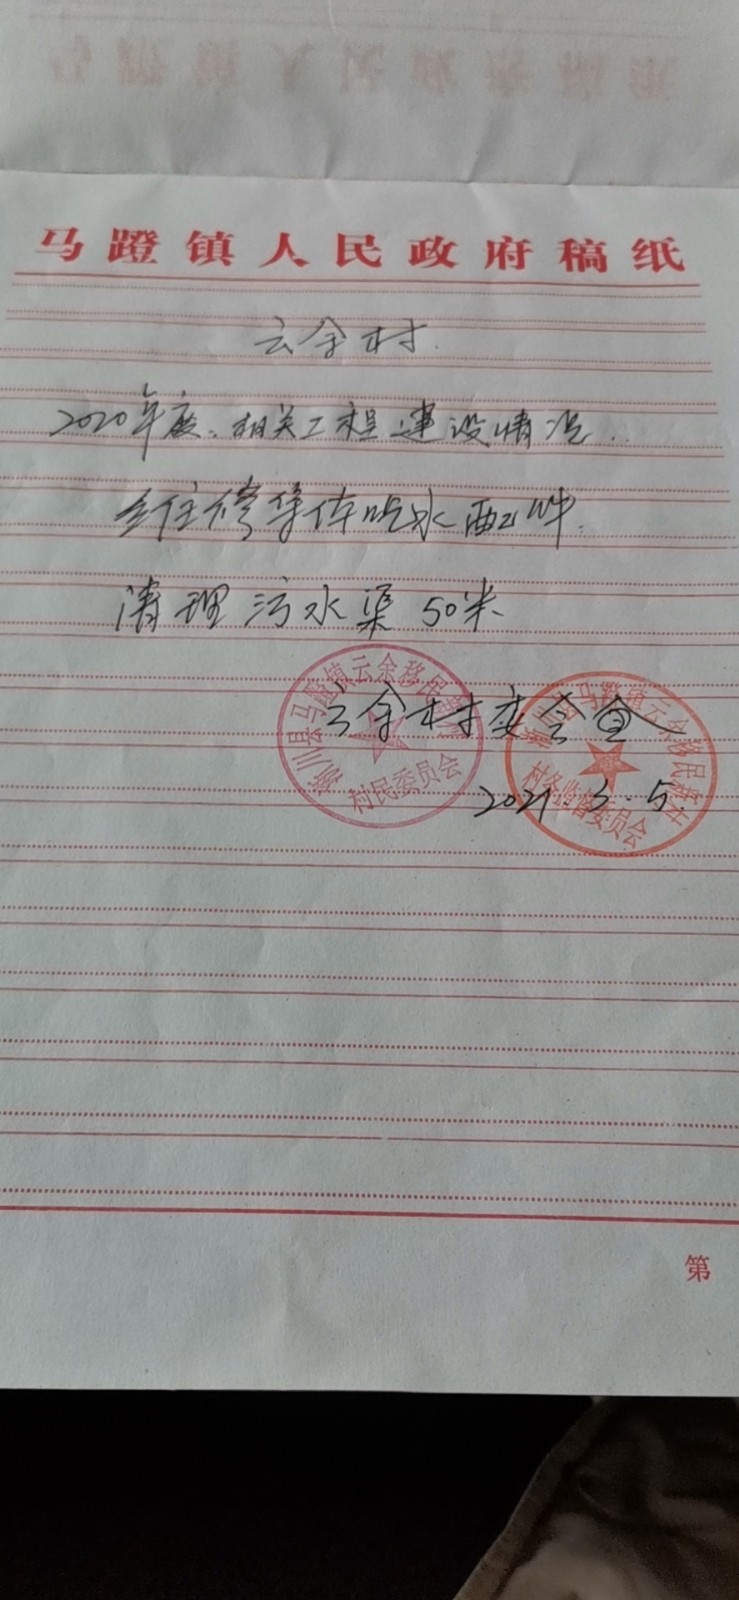 马蹬镇人民政府稿纸
云余村
2020年度相关工程建设情况
维修集体吃水配件
清理污水渠50米
淅川县马蹬镇云余移民新村
村民委员会
云余村委会
淅川县马蹬镇云余移民新村
村务监督委员会
2021.3.5
第